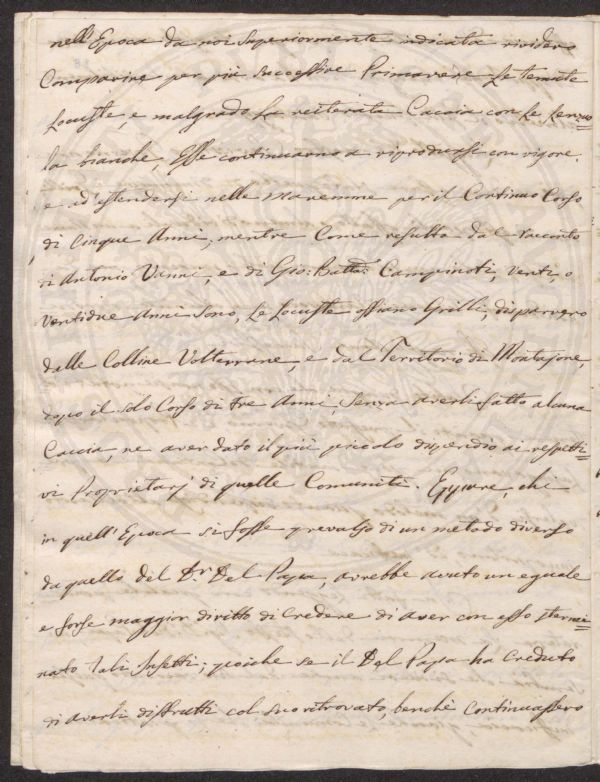 nell'Epoca da noi Superiormente indicata rividero
Comparire per più Successive Primavere Le temute
Locuste, e malgrado La reiterata Caccia con Le Lenzuo=
la bianche, Esse continuarno a riprodursi con vigore,
e ad'estendersi nelle Maremme per il Continuo Corso
di Cinque Anni, mentre Come resulta dal racconto
di Antonio Vanni, e di Gio: Batta Campinoti, venti, o
Ventidue Anni Sono, Le Locuste ossiano Grilli, disparvero
dalle Colline Volterrane, e dal Territorio di Montajone,
dopo il solo Corso di Tre Anni, Senza averli fatto alcuna
Caccia, ne aver dato il più piccolo disperdio ai respetti=
vi Proprietarj di quelle Comunità. Eppure, chi
in quell'Epoca si fosse prevalso di un metodo diverso
da quello del Dr. Del Papa, avrebbe avuto un eguale
e forse maggior diritto di Credere di aver con esso stermi=
nato tali Insetti; poiche se il Del Papa ha Creduto
di averli distrutti col suo ritrovato, benchè Continuassero